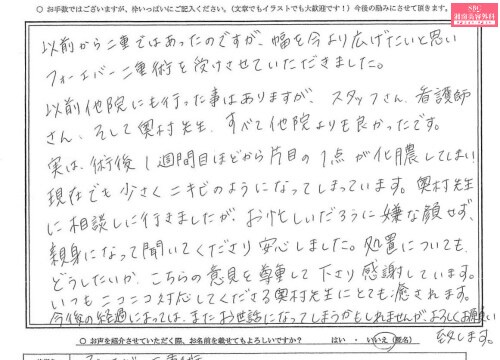 ○ お手数ではございますが、枠いっぱいにご記入ください。(文章でもイラストでも大歓迎です!)今後の励みにさせて頂きます。
SBC
湘南美容外科
以前から二重ではあったのですが、幅を今より広げたいと思い
フォーエバー二重術を受けさせていただきました。
以前他院にも行った事はありますが、スタッフさん、看護師
さん、そして奥村先生、すべて他院よりも良かったです。
実は、術後1週間目ほどから片目の1点が化膿してしまい
現在でも少さくニキビのようになってしまっています。奥村先生
に相談しに行きましたが、お忙しいだろうに嫌な顔せず、
親身になって聞いてくださり安心しました。処置についても、
どうしたいか、こちらの意見を尊重して下さり感謝しています。
いつもニコニコ対応してくださる奥村先生にとても癒されます。
今後の経過によっては、またお世話になってしまうかもしれませんが、よろしくお願い
致します。
○ お声を紹介させていただく際、お名前を載せてもよろしいですか? はい ・ いいえ(匿名)